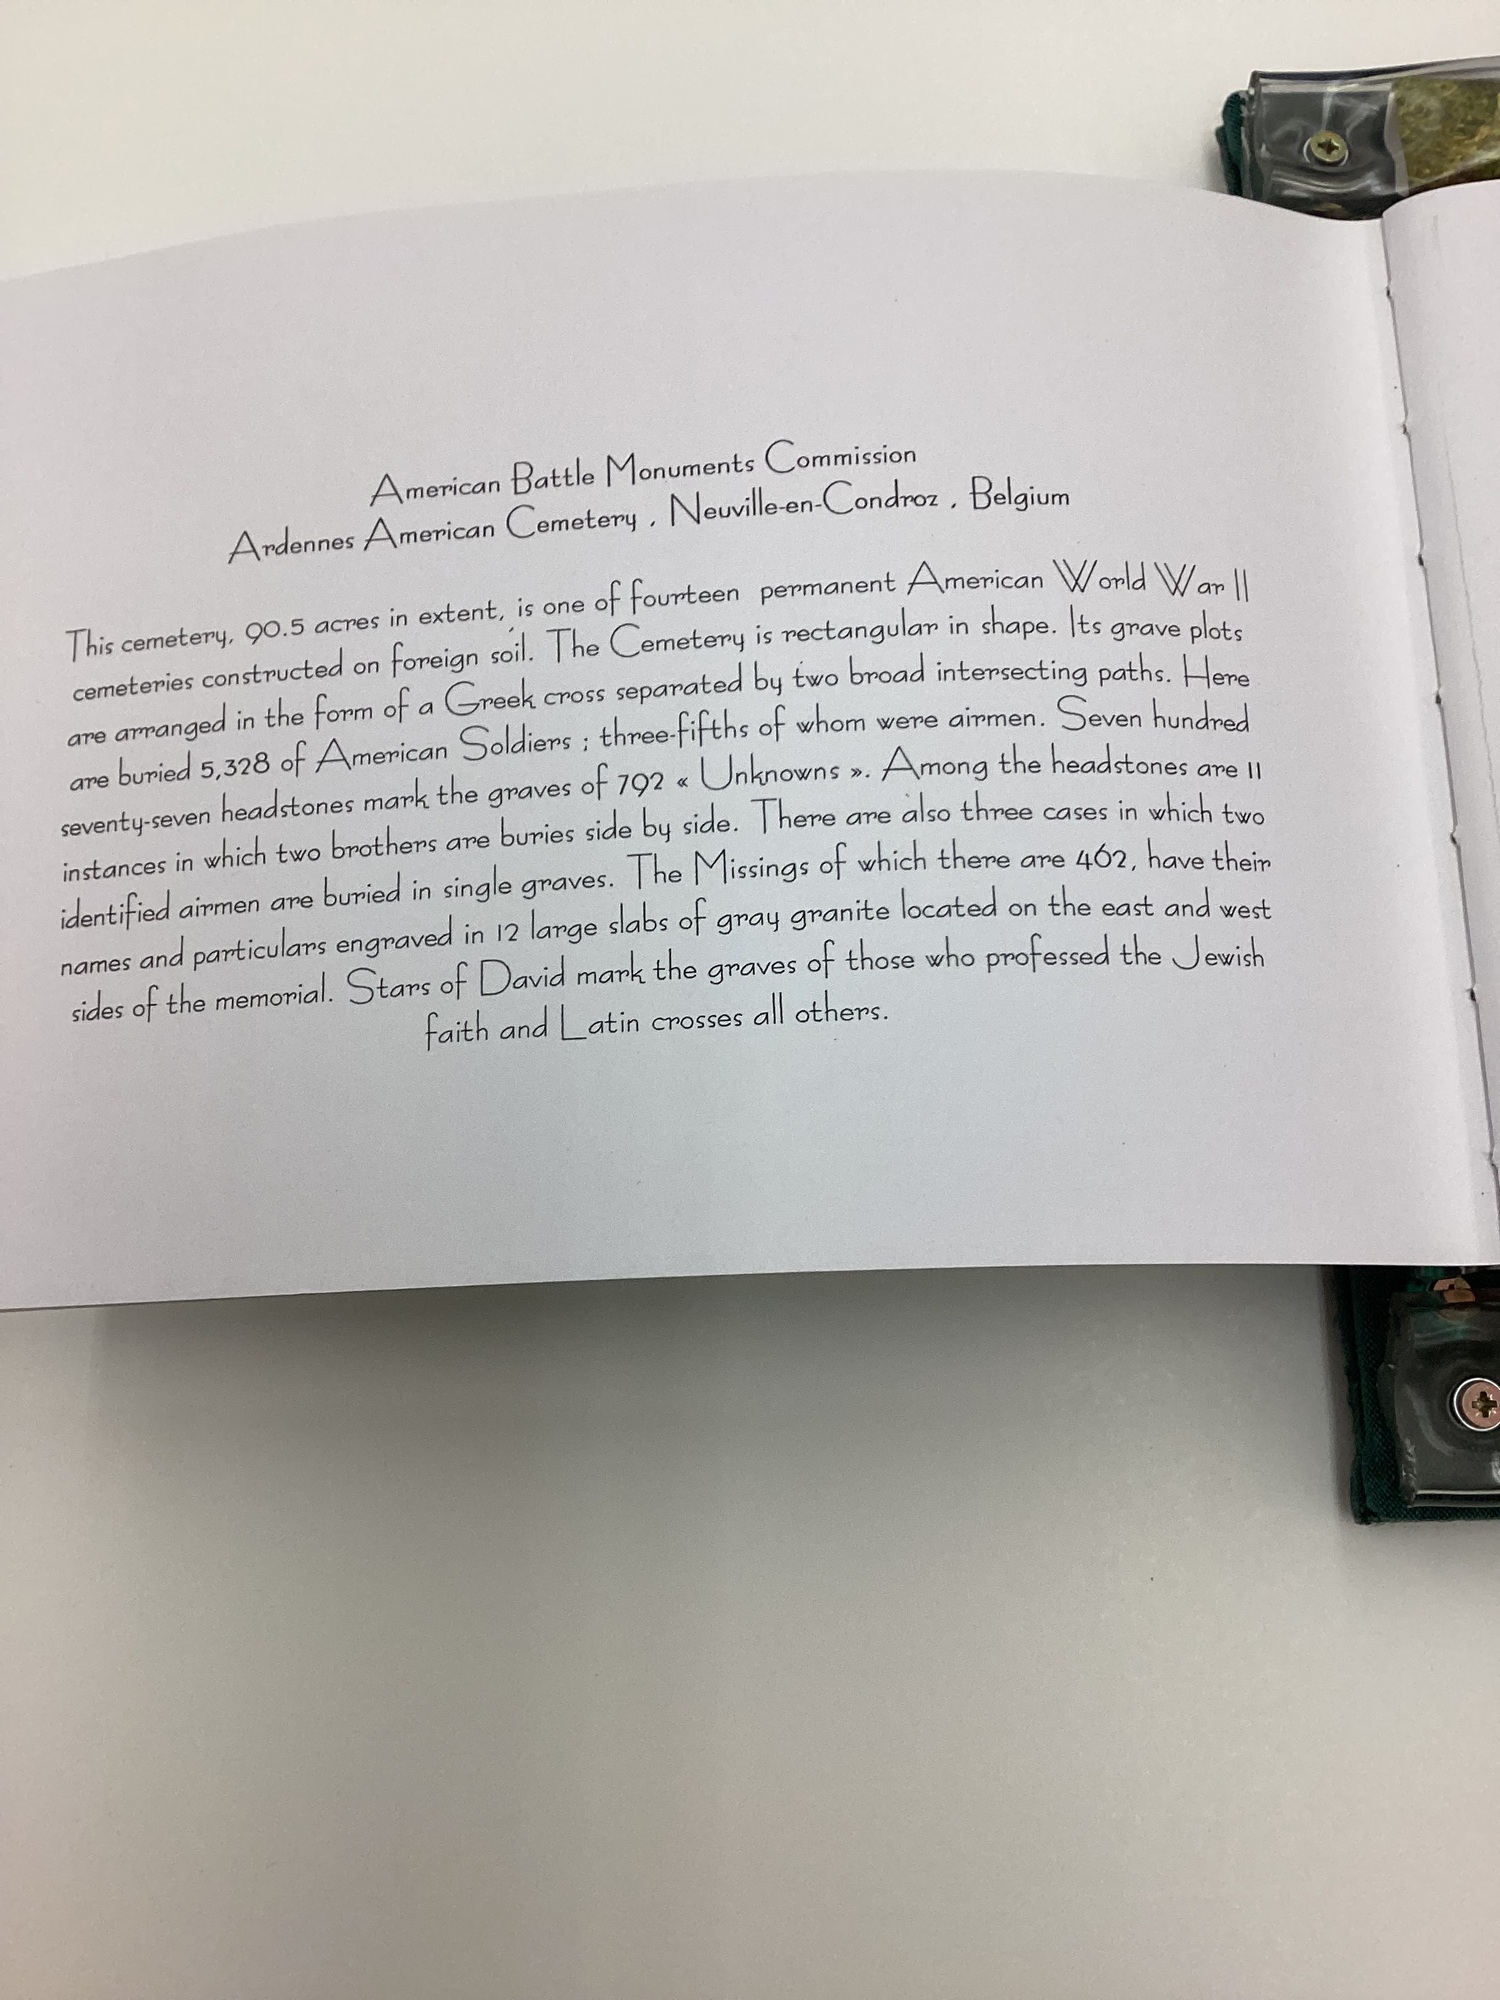 American Battle Monuments Commission
Ardennes American Cemetery , Neuville-en-Condroz , Belgium
This cemetery, 90.5 acres in extent, is one of fourteen permanent American World War II
cemeteries constructed on foreign soil. The Cemetery is rectangular in shape. Its grave plots
are arranged in the form of a Greek cross separated by two broad intersecting paths. Here
are buried 5,328 of American Soldiers ; three-fifths of whom were airmen. Seven hundred
seventy-seven headstones mark the graves of 792 « Unknowns ». Among the headstones are 11
instances in which two brothers are buries side by side. There are also three cases in which two
identified airmen are buried in single graves. The Missings of which there are 462, have their
names and particulars engraved in 12 large slabs of gray granite located on the east and west
sides of the memorial. Stars of David mark the graves of those who professed the Jewish
faith and Latin crosses all others.